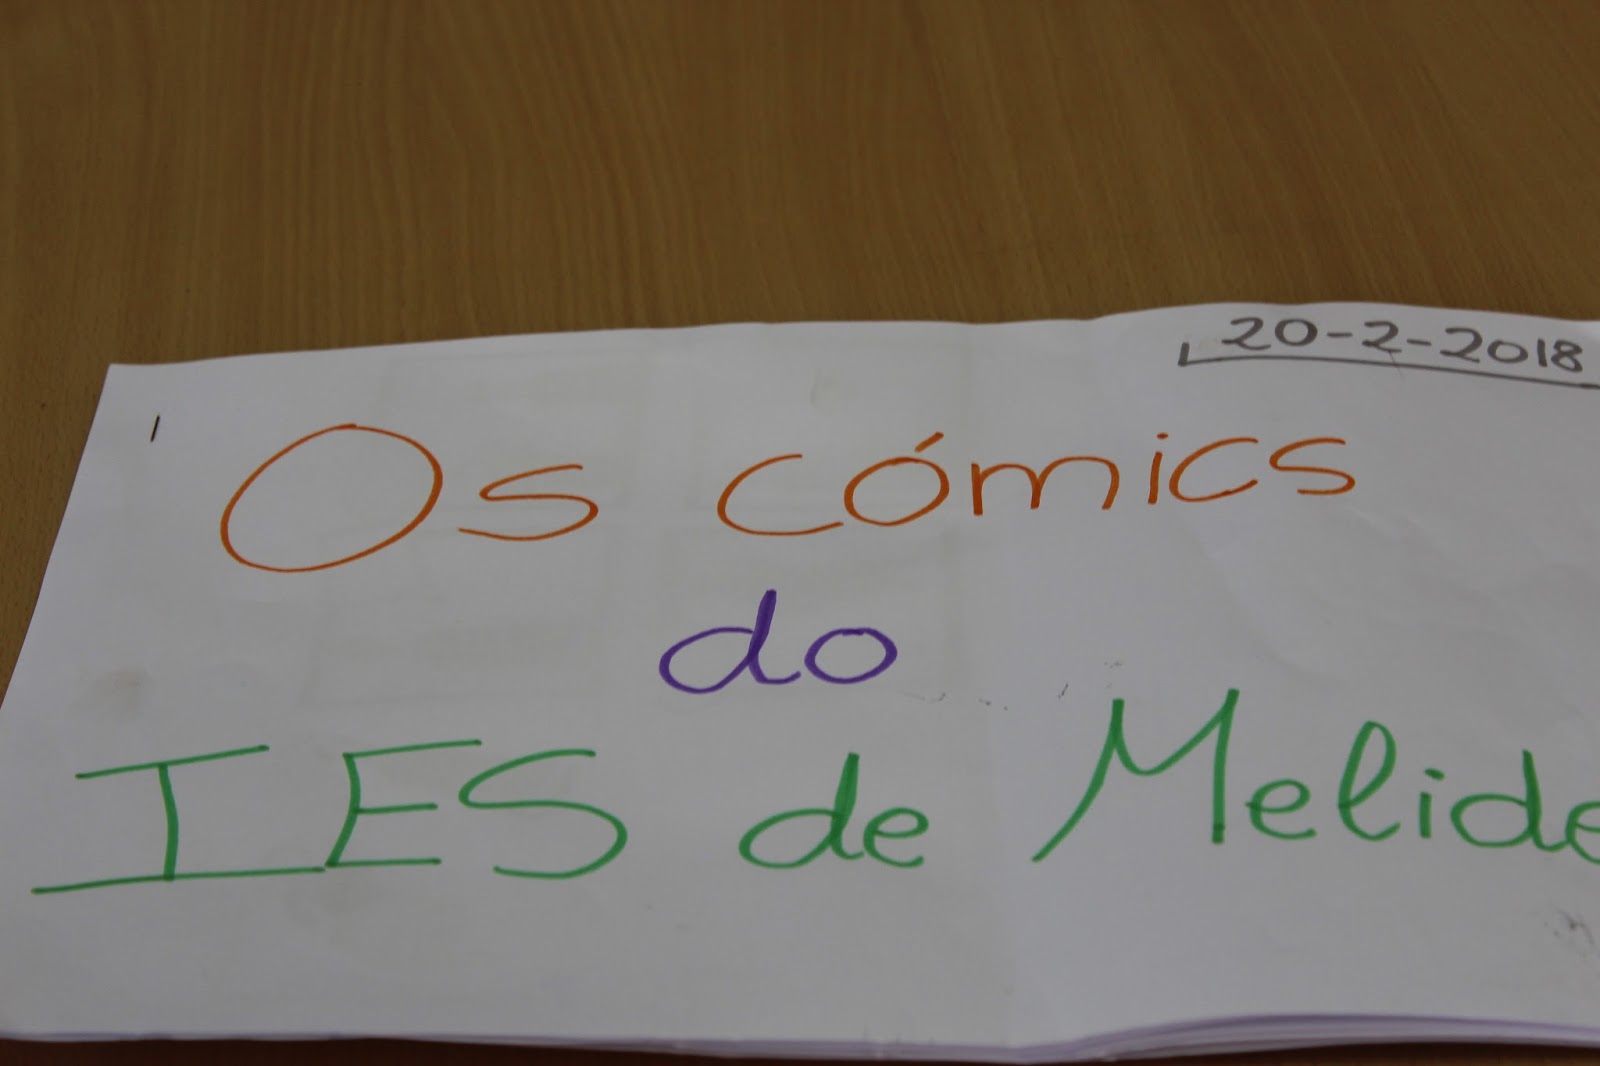 20-2-2018
Os cómics
do
IES de Melide